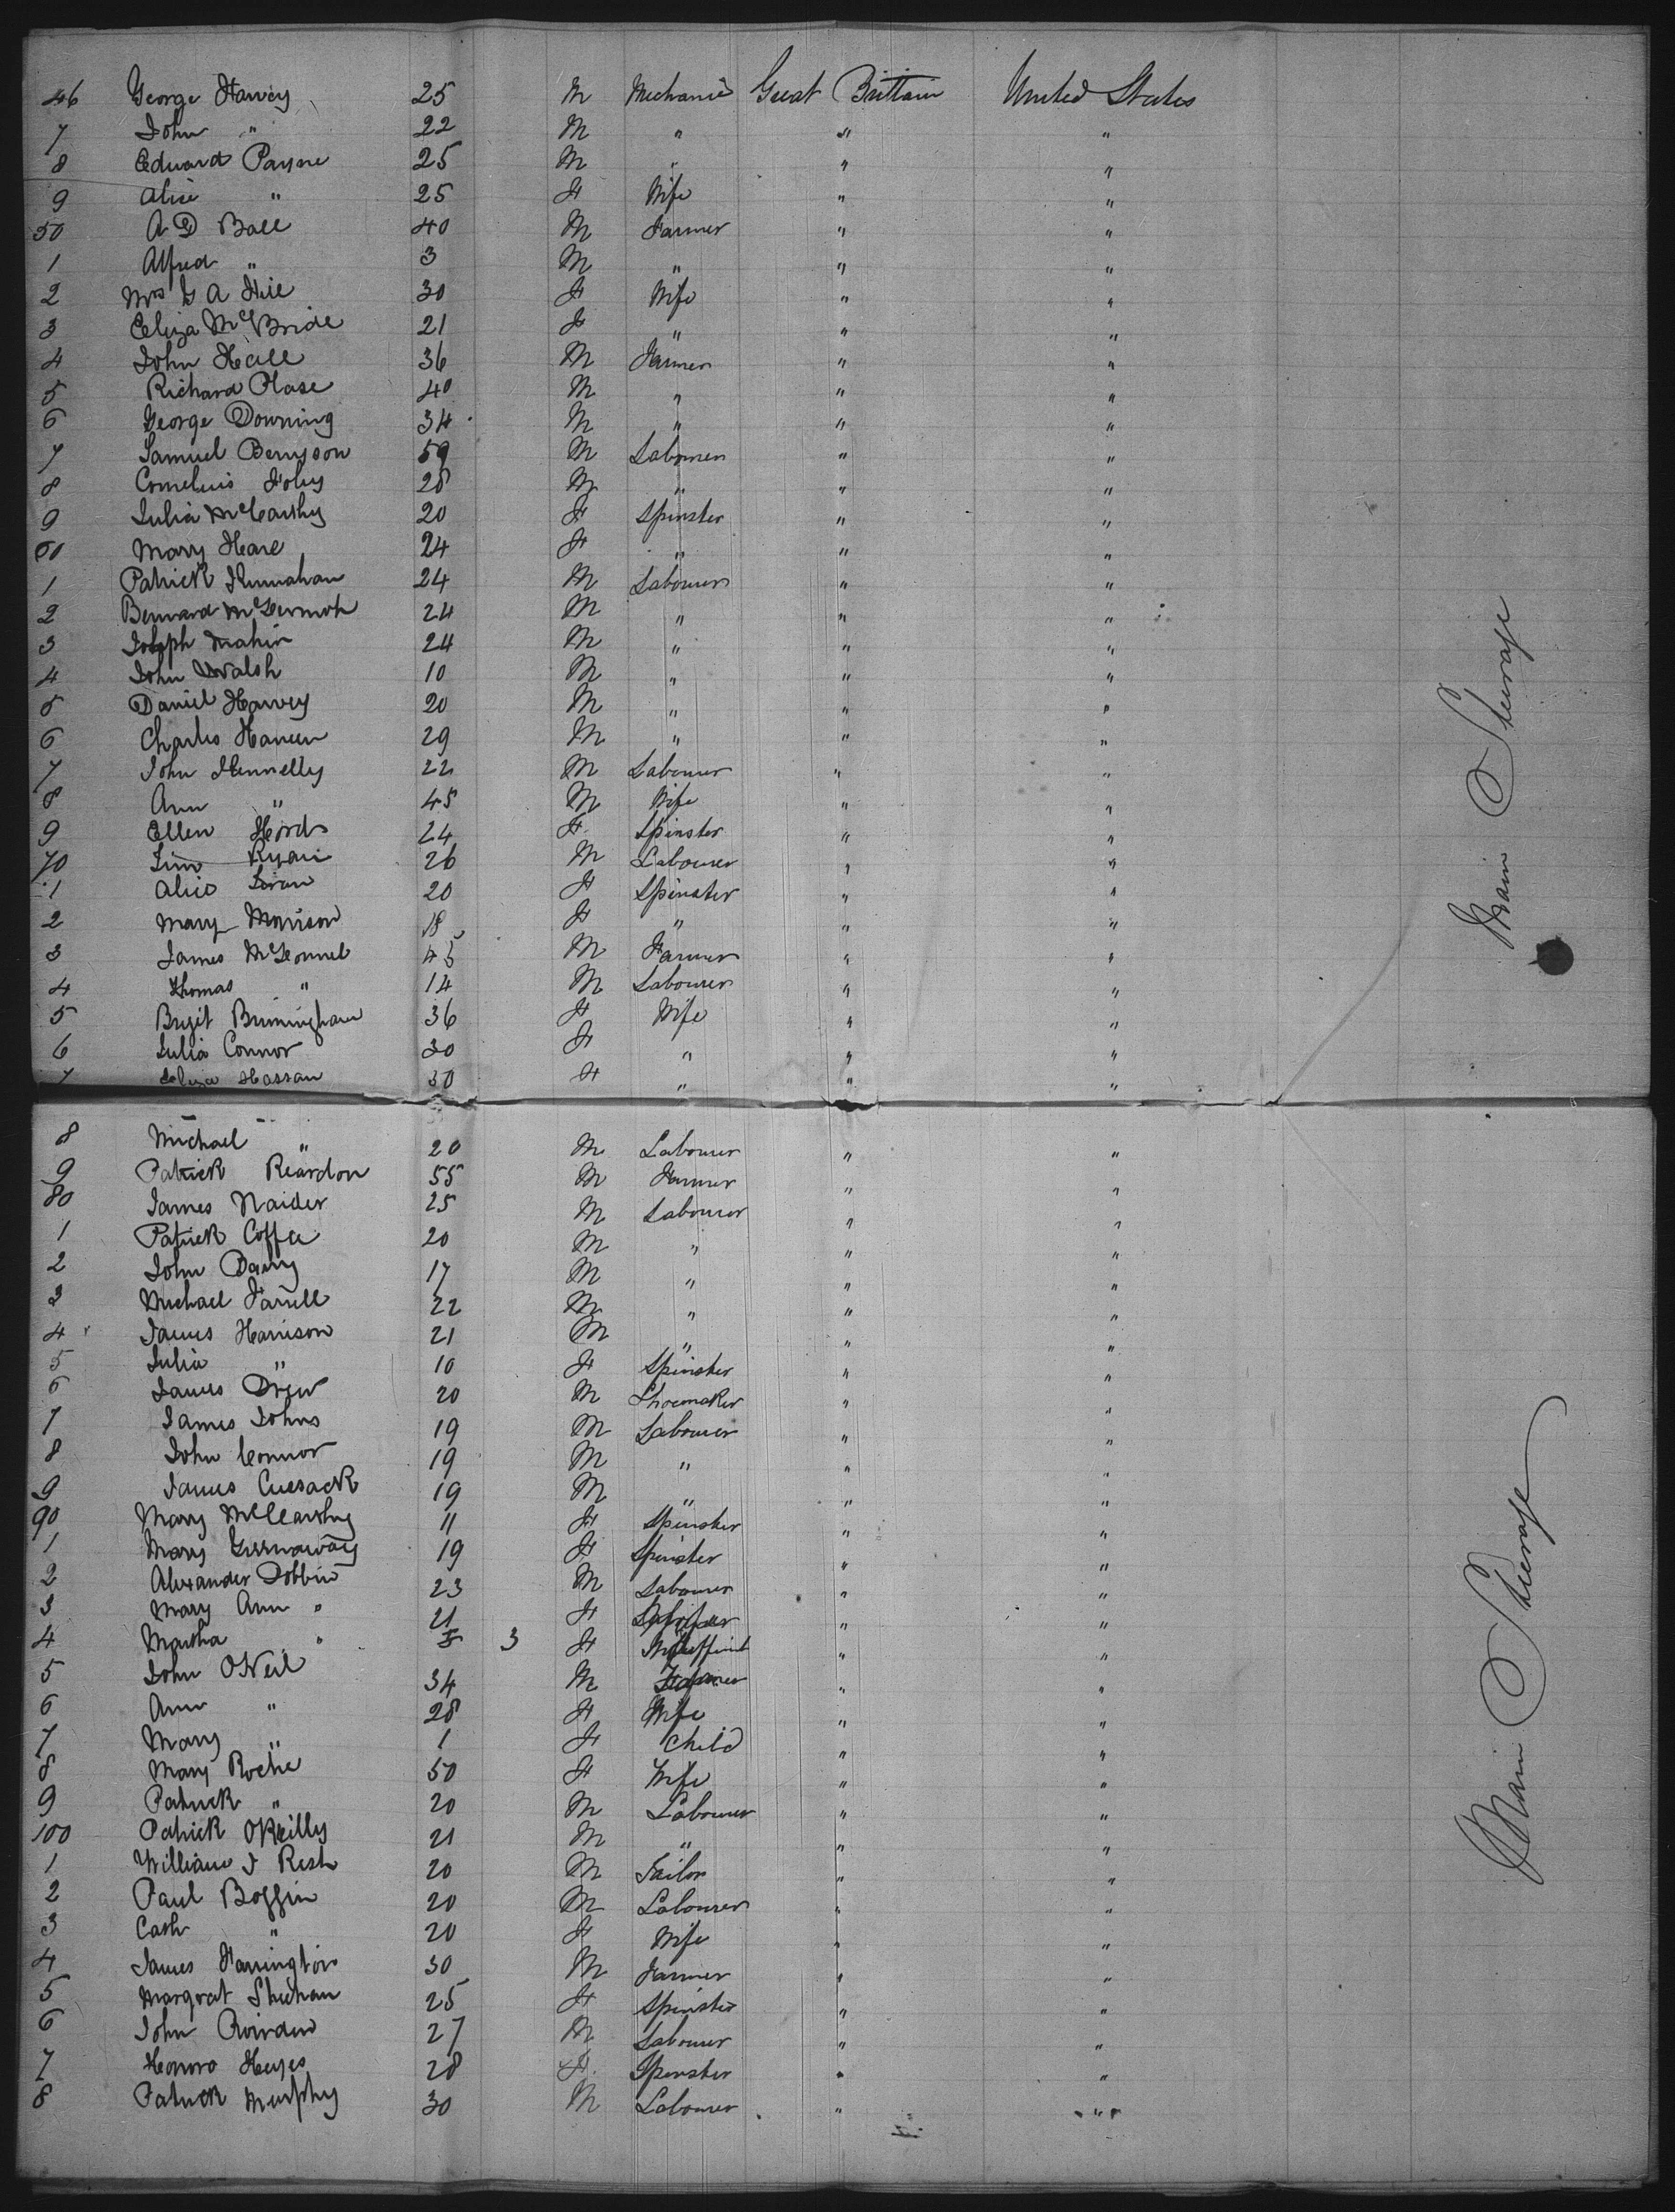 46 George Harvey 25 M Mechanic Great Brittain United States
7 John " 22 M " " "
8 Edward Payne 25 M " " "
9 Alice " 25 F Wife " "
50 A D Ball 40 M Farmer " "
1 Alfred " 3 M " " "
2 Mrs G A Hill 30 F Wife " "
3 Eliza McBride 21 F " " "
4 John Hall 36 M Farmer " "
5 Richard Plase 40 M " " "
6 George Downing 34 M " " "
7 Samuel Bennyson 59 M Labourer " "
8 Cornelius Foley 28 M " " "
9 Julia McCarthy 20 F Spinster " "
60 Mary Hare 24 F " " "
1 Patrick 24 M Labourer " "
2 Bernard McDermott 24 M " " "
3 Joseph Mahir 24 M " " "
4 John Walsh 10 M " " "
5 Daniel Harvey 20 M " " "
6 Charles 29 M " " "
7 John Fennelly 22 M Labourer " "
8 Ann " 45 M Wife " "
9 Ellen Hords 24 F Spinster " "
70 Jim Ryan 26 M Labourer " "
1 Alice 20 F Spinster " "
2 Mary Morrison 18 F " " "
3 James McConnel 45 M Farmer " "
4 Thomas " 14 M Labourer " "
5 Brigit Brimingham 36 F Wife " "
6 Julia Connor 30 F " " "
7 Eliza Hassan 30 F " " "
8 Michael " 20 M Labourer " "
9 Patrick Reardon 55 M Farmer " "
80 James Naider 25 M Labourer " "
1 Patrick Coffa 20 M " " "
2 John Darcy 17 M " " "
3 Michael Farrell 22 M " " "
4 James Harrison 21 M " " "
5 Julia " 10 F Spinster " "
6 James Drew 20 M Shoemaker " "
7 James Johns 19 M Labourer " "
8 John Connor 19 M " " "
9 James Cusack 19 M " " "
90 Mary McCarthy 11 F Spinster " "
1 Mary Greenaway 19 F Spinster " "
2 Alexander Dobbin 23 M Labourer " "
3 Mary Ann " 21 F " "
4 Martha " 3 F " "
5 John ONeil 34 M Farmer " "
6 Ann " 28 F Wife " "
7 Mary " 1 F Child " "
8 Mary Roche 50 F Wife " "
9 Patrick " 20 M Labourer " "
100 Patrick OReilly 21 M " " "
1 William J Rish 20 M Tailor " "
2 Paul Boggin 20 M Labourer " "
3 Cath " 20 F Wife " "
4 James Farrington 30 M Farmer " "
5 Margrat Sheehan 25 F Spinster " "
6 John 27 M Labourer " "
7 Honora Heyes 28 F Spinster " "
8 Patrick Murphy 30 M Labourer " "
Main Steerage
Main Steerage